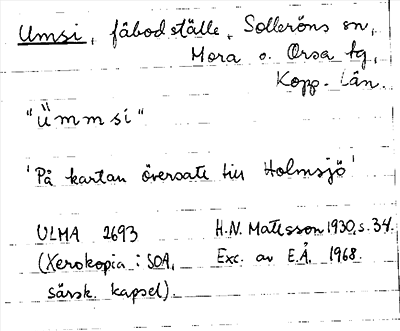 Umsi, fäbodställe, Solleröns sn,
Mora o. Orsa tg,
Kopp. län.
"Ümmsi"
'På kartan översatt till Holmsjö'
ULMA 2693 H.N. Matsson 1930, s. 34.
(Xerokopia i SOA, Exc. av E.Å. 1968.
särsk. kapsel).